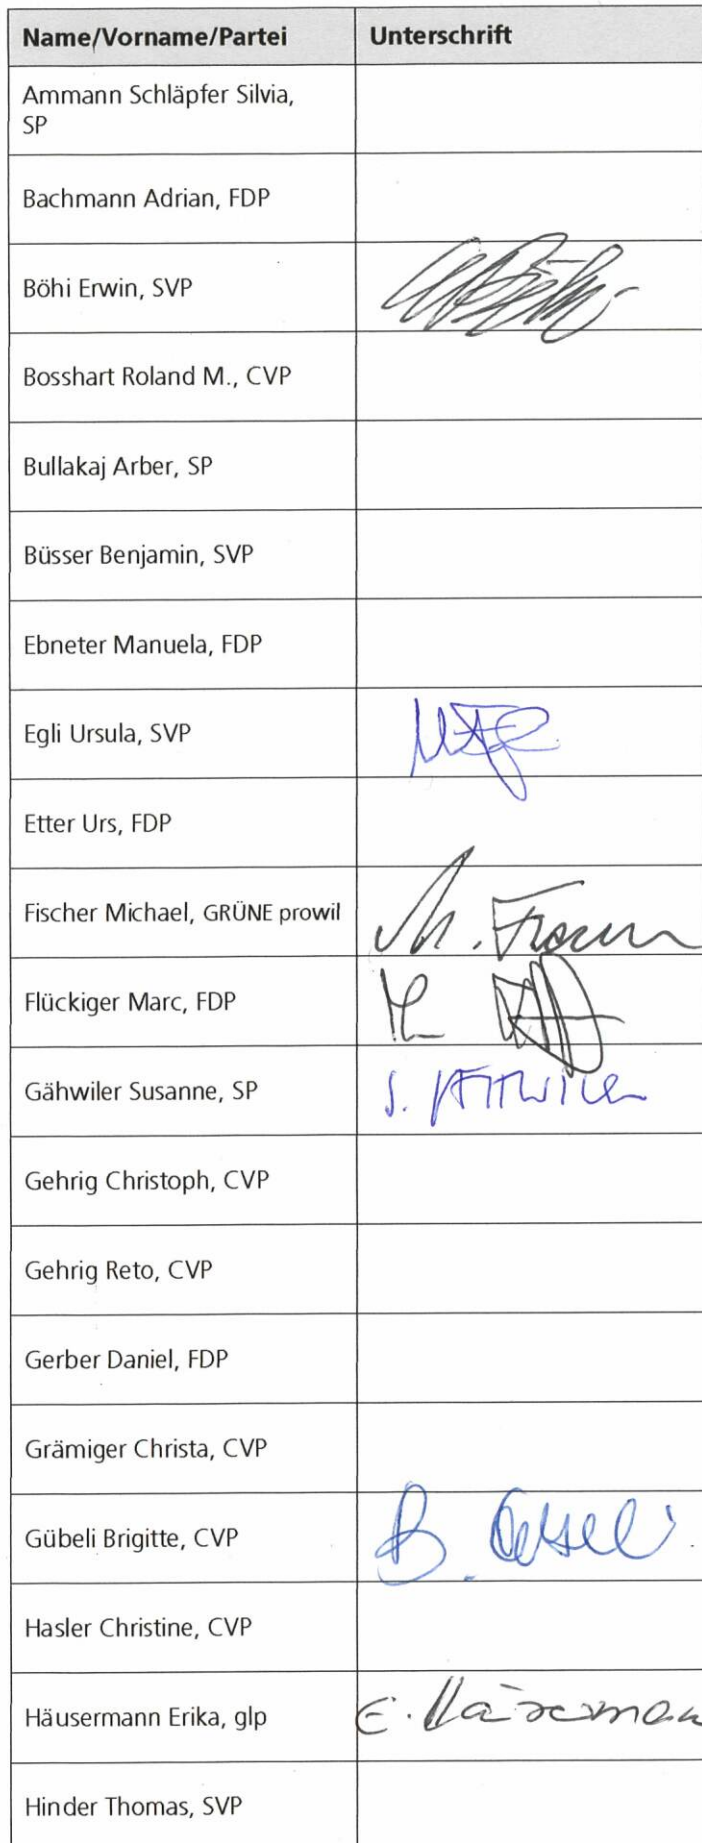 Name/Vorname/Partei Unterschrift
Ammann Schläpfer Silvia,
SP
Bachmann Adrian, FDP
Böhi Erwin, SVP
Bosshart Roland M., CVP
Bullakaj Arber, SP
Büsser Benjamin, SVP
Ebneter Manuela, FDP
Egli Ursula, SVP
Etter Urs, FDP
Fischer Michael, GRÜNE prowil
Flückiger Marc, FDP
Gähwiler Susanne, SP
Gehrig Christoph, CVP
Gehrig Reto, CVP
Gerber Daniel, FDP
Grämiger Christa, CVP
Gübeli Brigitte, CVP
Hasler Christine, CVP
Häusermann Erika, glp
Hinder Thomas, SVP